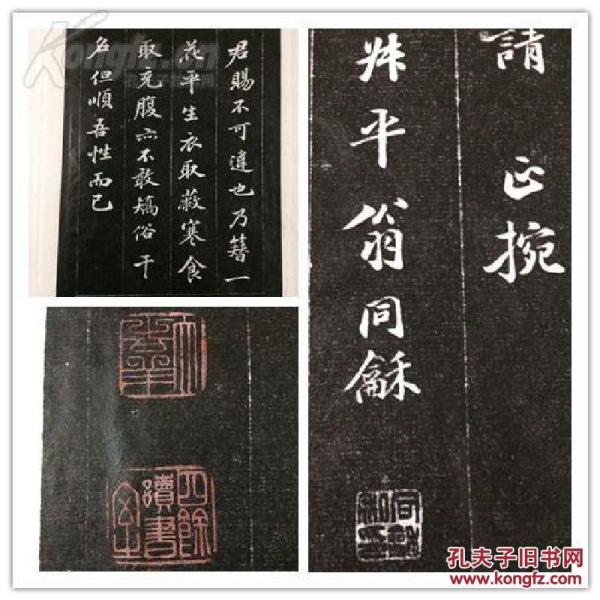 君賜不可違也乃簪一
花平生衣取蔽寒食
取充腹亦不敢矯俗干
名但順吾性而已
請
正捥
叔平翁同龢
四餘
讀書
室
孔夫子旧书网
www.kongfz.com